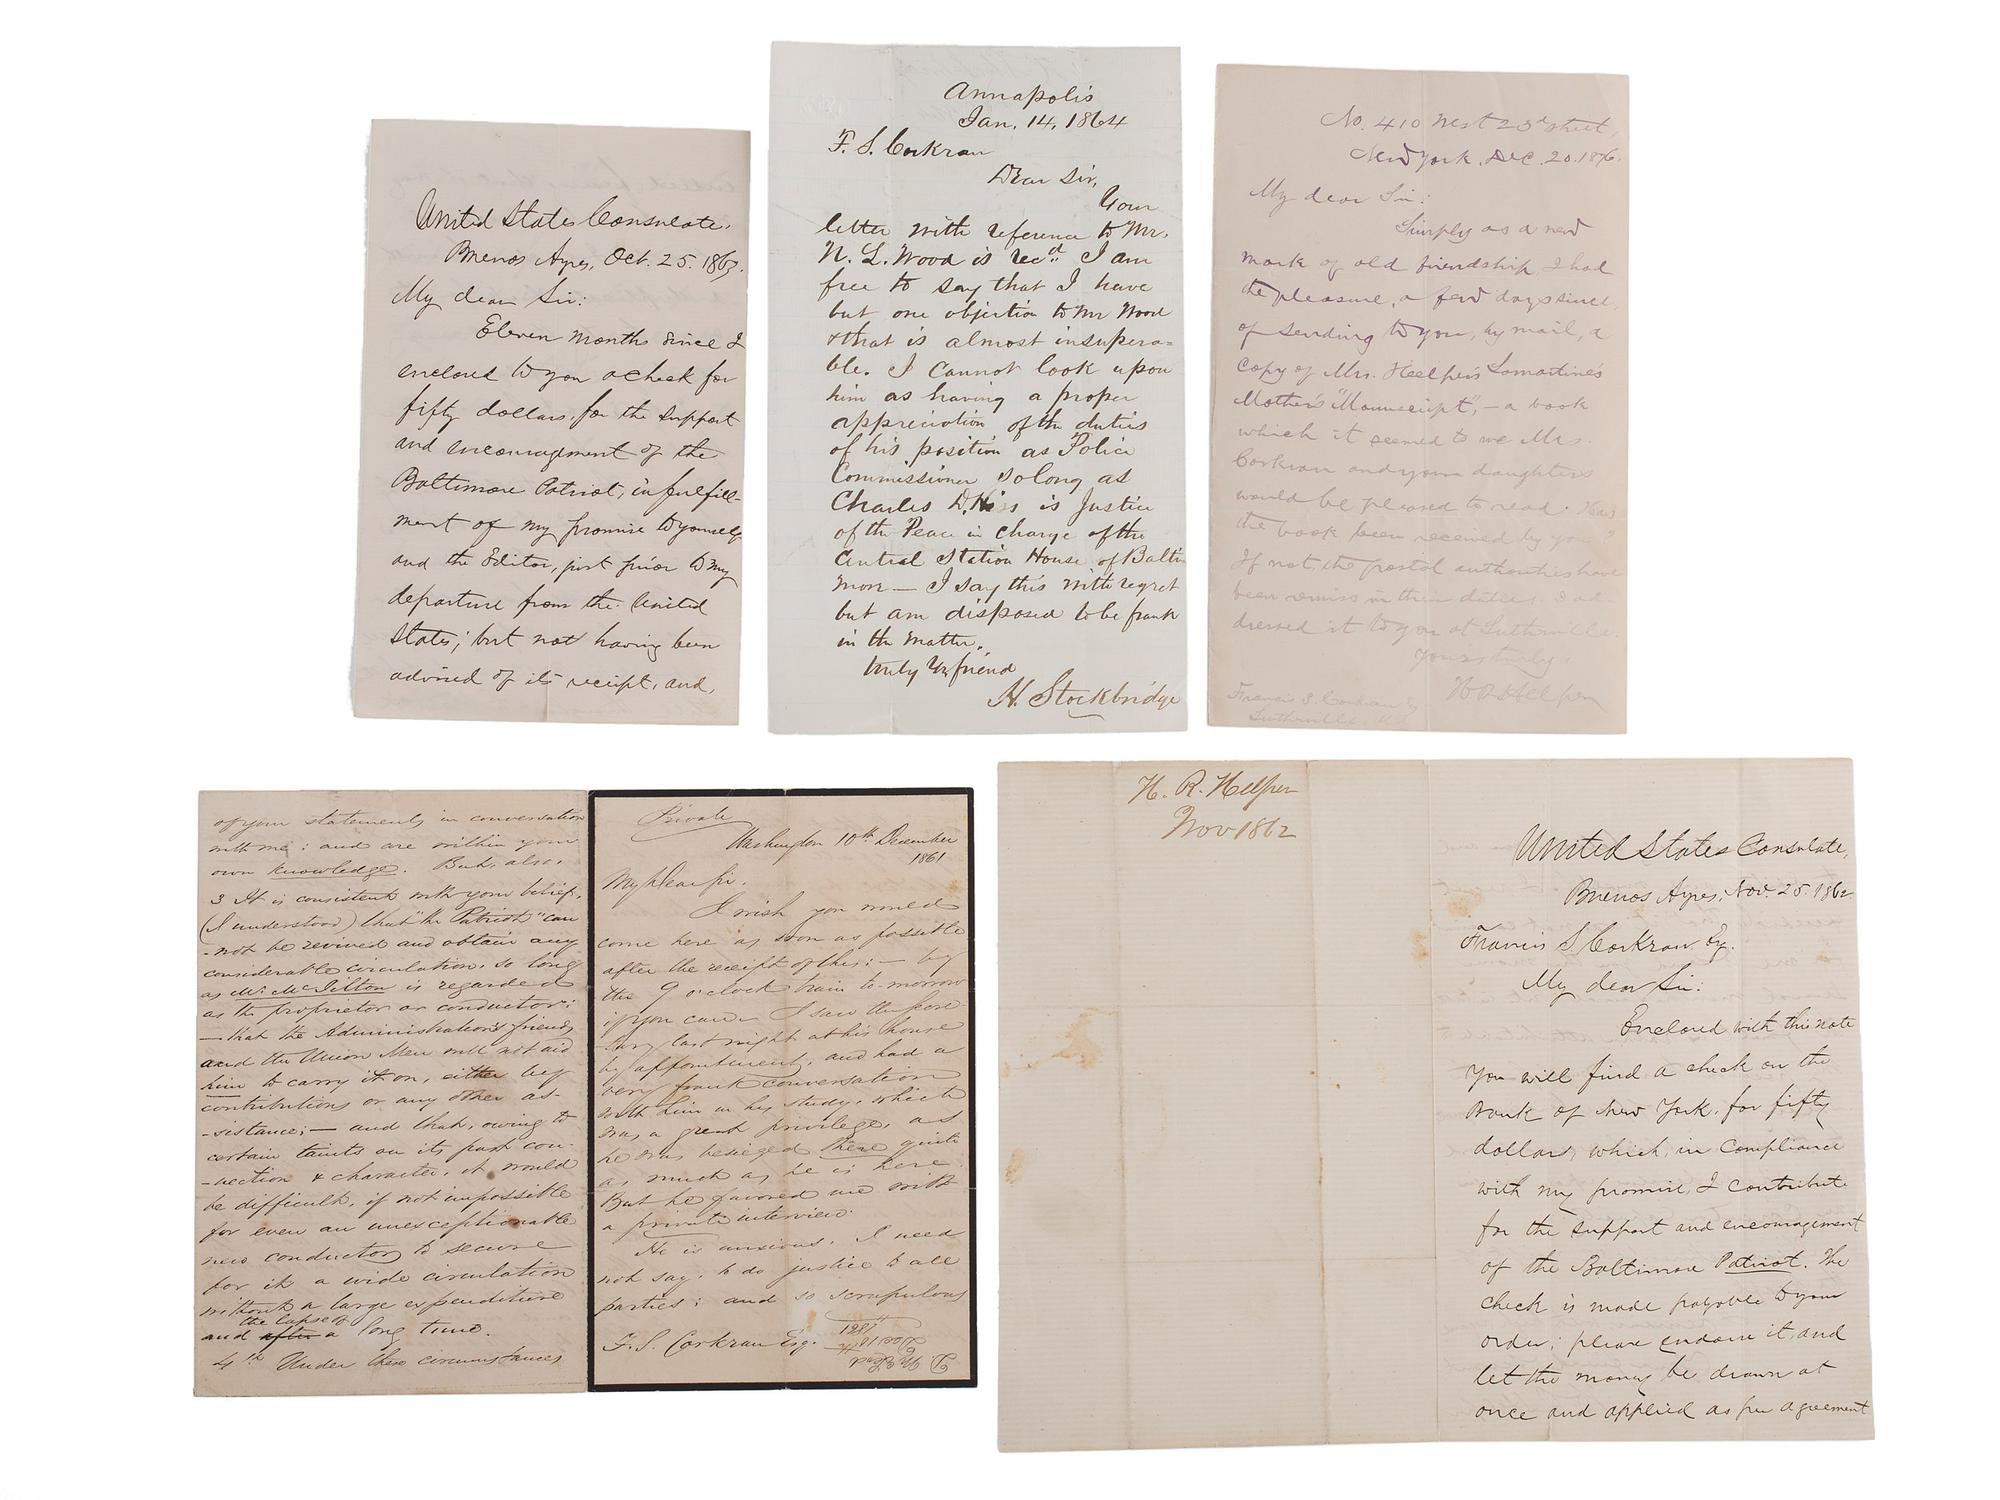 United States Consulate,
Buenos Ayres, Oct. 25. 1863.
My dear Sir:
Eleven months since I
enclosed to you a check for
fifty dollars, for the support
and encouragment of the
Baltimore Patriot, in fulfill-
ment of my promise to yourself
and the Editor, just prior to my
departure from the United
States; but not having been
advised of its receipt, and,
Annapolis
Jan. 14, 1864
F. S. Corkran
Dear Sir,
Your
letter with reference to Mr.
N. L. Wood is recd. I am
free to say that I have
but one objection to Mr Wood
& that is almost insupera-
ble. I cannot look upon
him as having a proper
appreciation of the duties
of his position as Police
Commissioner so long as
Charles D. is Justice
of the Peace in charge of the
Central Station House of Balti
more — I say this with regret
but am disposed to be frank
in the matter.
truly Yr friend
H. Stockbridge
No. 410 West 23d street,
New York, Dec. 20. 1876.
My dear Sir:
Simply as a new
mark of old friendship, I had
the pleasure, a few days since,
of sending to you, by mail, a
copy of Mrs. Helper's Lamartine's
Mother's "Manuscript", – a book
which it seemed to me Mrs.
Corkran and your daughters
would be pleased to read. Has
the book been received by you?
If not, the postal authorities have
been remiss in their duties. I ad-
dressed it to you at Lutherville
Yours truly,
H R Helper
Francis S. Corkran Esq
Lutherville, Md.
of your statements in conversation
with me; and are within your
own knowledge. But, also,
3 It is consistent with your belief,
(I understood) that "the Patriot" can
-not be revived and obtain any
considerable circulation, so long
as Mr. McJilton is regarded
as the proprietor or conductor;
— that the Administration's friends
and the Union Men will not aid
him to carry it on, either by
contributions or any other as-
-sistance; — and that, owing to
certain taints on its past con-
-nection & character, it would
be difficult, if not impossible
for even an unexceptionable
new conductor to secure
for it a wide circulation
without a large expenditure
the lapse of
and after a long time.
4th Under these circumstances
Private
Washington 10th December
1861
My Dear Sir.
I wish you would
come here as soon as possible
after the receipt of this: — by
the 9 o'clock train to-morrow
if you can. I saw the Secre
tary last night at his house
by appointment, and had a
very frank conversation
with him in his study, which
was a great privilege, as
he was besieged there quite
as much as he is here.
But he favored me with
a private interview.
He is anxious, I need
not say, to do justice to all
parties; and so scrupulous
F. S. Corkran Esq.
Dec 10th
1861
H. R. Helper
Nov 1862
United States Consulate,
Buenos Ayres, Nov. 25. 1862.
Francis S Corkran, Esq.
My dear Sir:
Enclosed with this note
you will find a check on the
Bank of New York, for fifty
dollars, which, in compliance
with my promise, I contribute
for the support and encouragement
of the Baltimore Patriot. The
check is made payable to your
order; please endorse it, and
let the money be drawn at
once and applied as per agreement